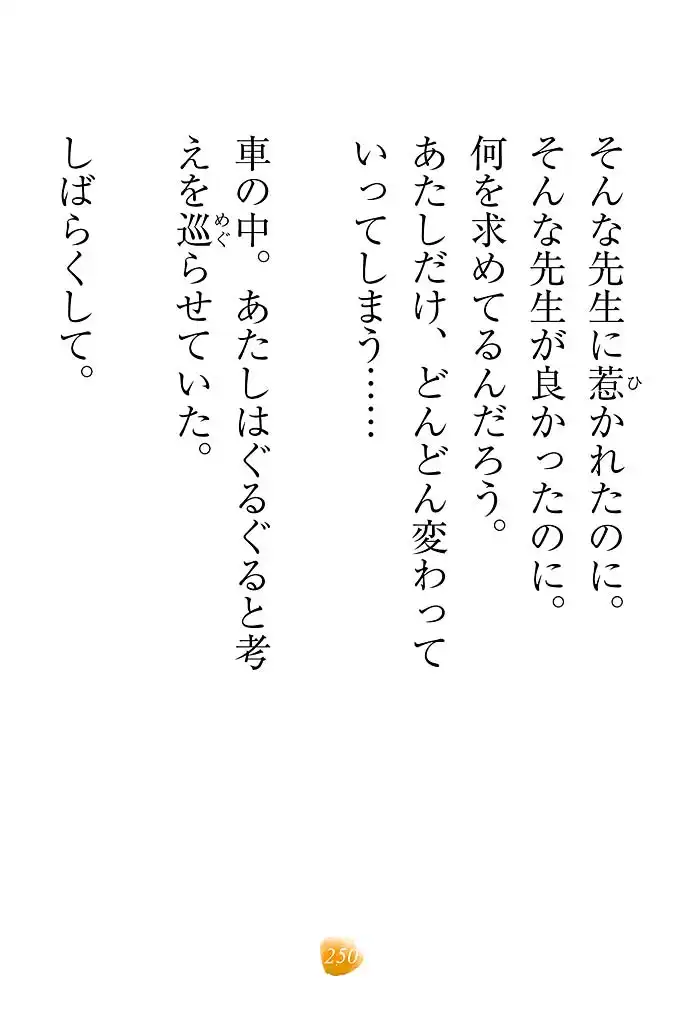 そんな先生に惹かれたのに。
そんな先生が良かったのに。
何を求めてるんだろう。
あたしだけ、どんどん変わって
いってしまう……
車の中。あたしはぐるぐると考
えを巡らせていた。
しばらくして。
ひ
めぐ
250